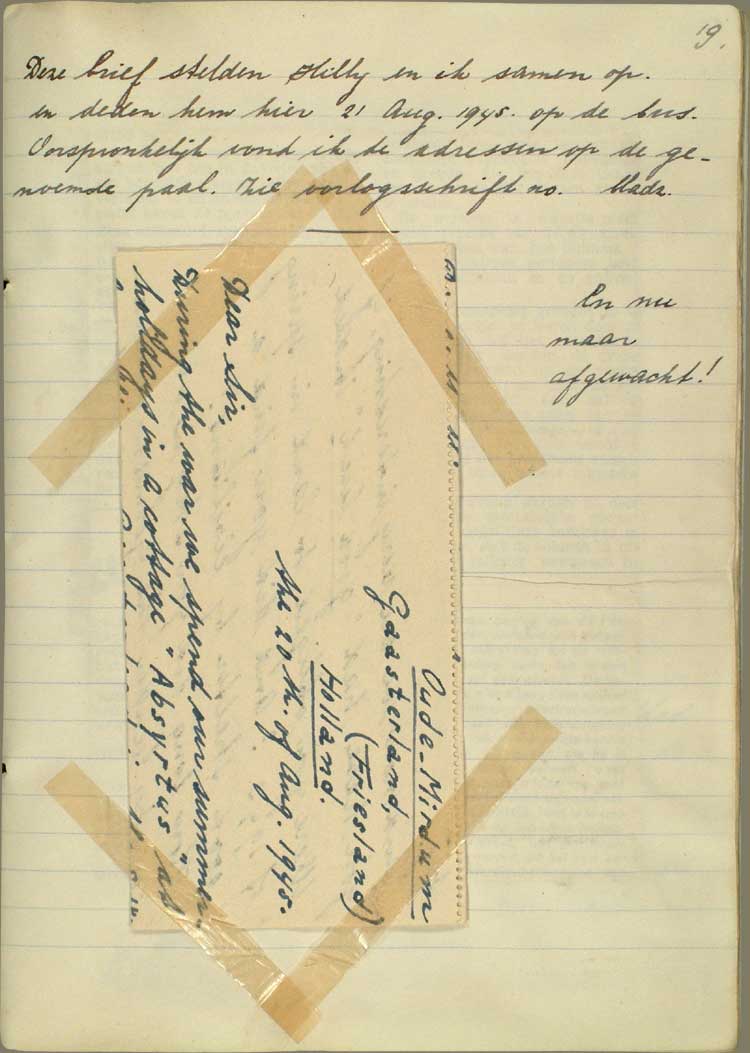 19.
Deze brief stelden Hilly en ik samen op.
en deden hem hier 21 Aug. 1945. op de bus.
Oorspronkelijk vond ik de adressen op de ge-
noemde paal. Zie oorlogsschrift no. bladz.
En nu
maar
afgewacht!
Oude-Mirdum
Gaasterland,
(Friesland)
Holland.
the 20th. of Aug. 1945.
Dear Sir,
During the war we spend our summer-
holidays in a cottage "Absyrtus" at